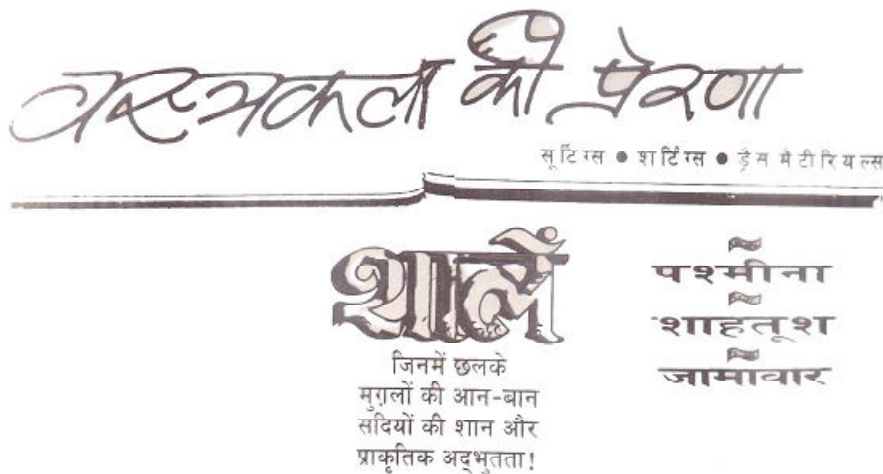 वस्त्रकला की प्रेरणा
सूटिंग्स ● शर्टिंग्स ● ड्रैस मैटीरियल्स
शालें
जिनमें छलके
मुग़लों की आन-बान
सदियों की शान और
प्राकृतिक अद्भुतता!
पश्मीना
शाहतूश
जामावार